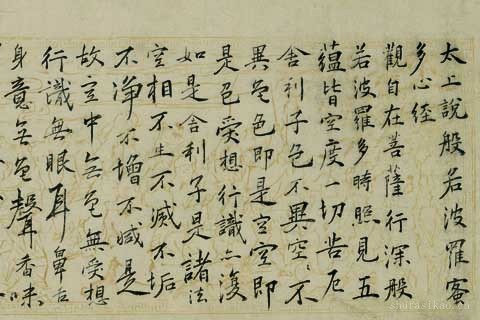 太上說般若波羅蜜
多心經
觀自在菩薩行深般
若波羅多時照見五
蘊皆空度一切苦厄
舍利子色不異空〻不
異色色即是空空即
是色受想行識亦復
如是舍利子是諸法
空相不生不滅不垢
不淨不增不減是
故空中無色無受想
行識無眼耳鼻舌
身意無色聲香味